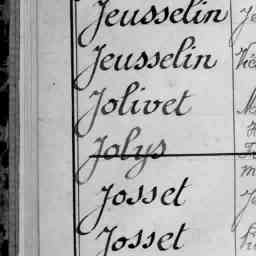 Jeusselin
Jeusselin
Jolivet
Jolys
Josset
Josset